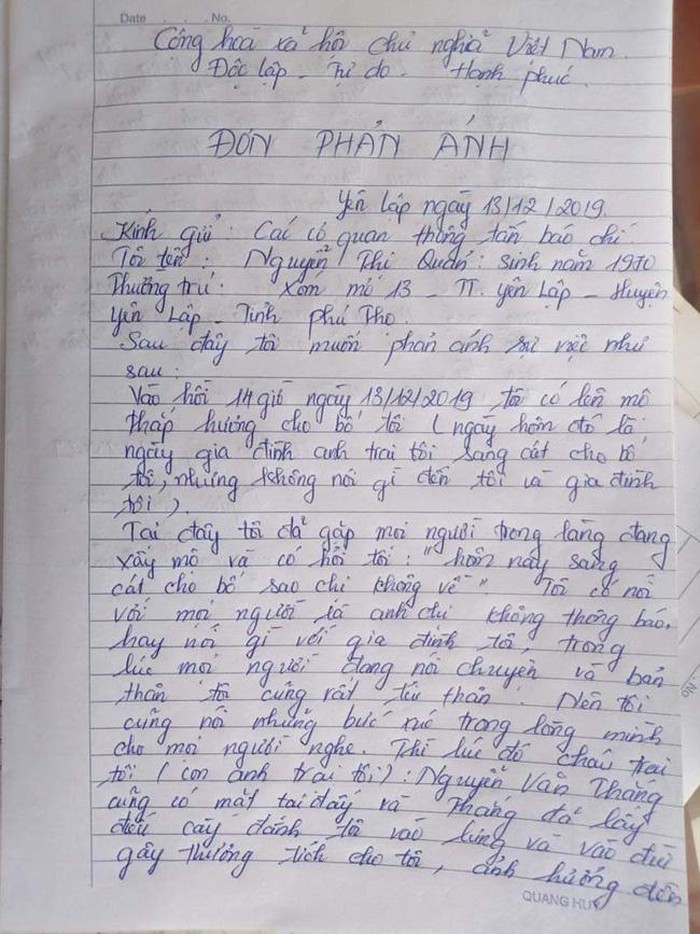 Date . . . No.
Cộng hoà xã hội chủ nghĩa Việt Nam.
Độc lập - Tự do - Hạnh phúc.
ĐƠN PHẢN ÁNH
Yên Lập ngày 13/12/2019.
Kính gửi: Các cơ quan thông tấn báo chí.
Tôi tên: Nguyễn Thị Quán: Sinh năm 1970
Thường trú: Xóm mơ 13 - TT. Yên Lập - Huyện
Yên Lập - Tỉnh Phú Thọ.
Sau đây tôi muốn phản ánh sự việc như
sau:
Vào hồi 14 giờ ngày 13/12/2019 tôi có lên mộ
thắp hương cho bố tôi (ngày hôm đó là
ngày gia đình anh trai tôi sang cát cho bố
tôi, nhưng không nói gì đến tôi và gia đình
tôi).
Tại đây tôi đã gặp mọi người trong làng đang
xây mộ và có hỏi tôi: "hôm nay sang
cát cho bố sao chị không về". Tôi có nói
với mọi người là anh chị không thông báo,
hay nói gì với gia đình tôi, trong
lúc mọi người đang nói chuyện và bản
thân tôi cũng rất tủi thân. Nên tôi
cũng nói những bức xúc trong lòng mình
cho mọi người nghe. Thì lúc đó cháu trai
tôi (con anh trai tôi): Nguyễn Văn Thắng
cũng có mặt tại đấy và Thắng đã lấy
điếu cày đánh tôi vào lưng và vào đùi
gây thương tích cho tôi, ảnh hưởng đến
QUANG HUY